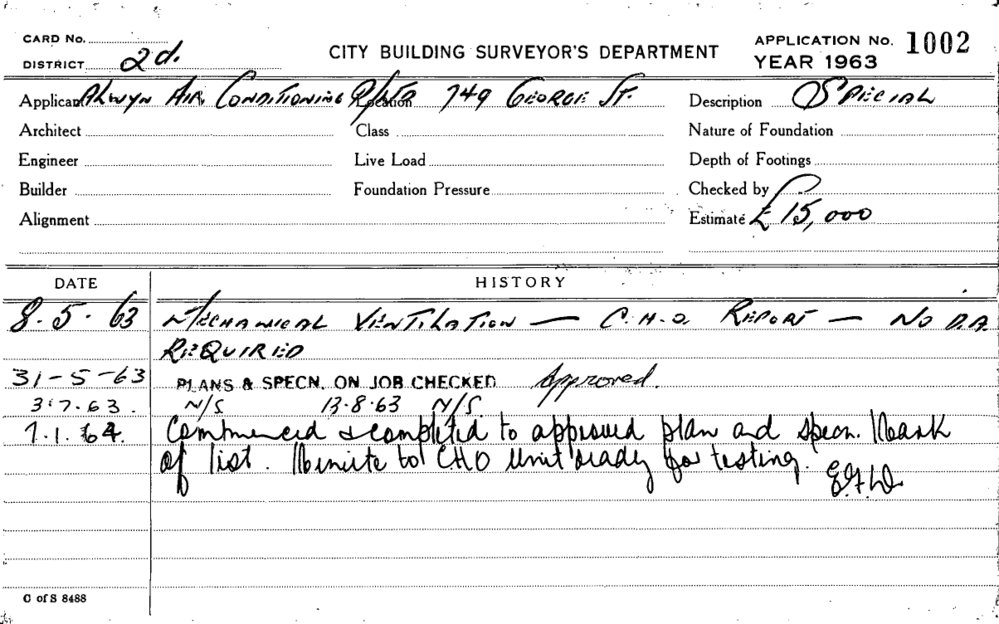 CARD No.
DISTRICT 2d.
CITY BUILDING SURVEYOR'S DEPARTMENT
APPLICATION No. 1002
YEAR 1963
Applicant Alwyn Air Conditioning P/L Location 749 George St. Description Special
Architect Class Nature of Foundation
Engineer Live Load Depth of Footings
Builder Foundation Pressure Checked by
Alignment Estimate £15,000
DATE HISTORY
8.5.63 Mechanical Ventilation — C.H.O. Report — No D.A.
Required
31-5-63 PLANS & SPECN. ON JOB CHECKED Approved.
3.7.63. N/S 13.8.63 N/S.
7.1.64. Commenced & completed to approved plan and specn. Mark
off list. Minute to CHO Unit ready for testing.
C of S 8488